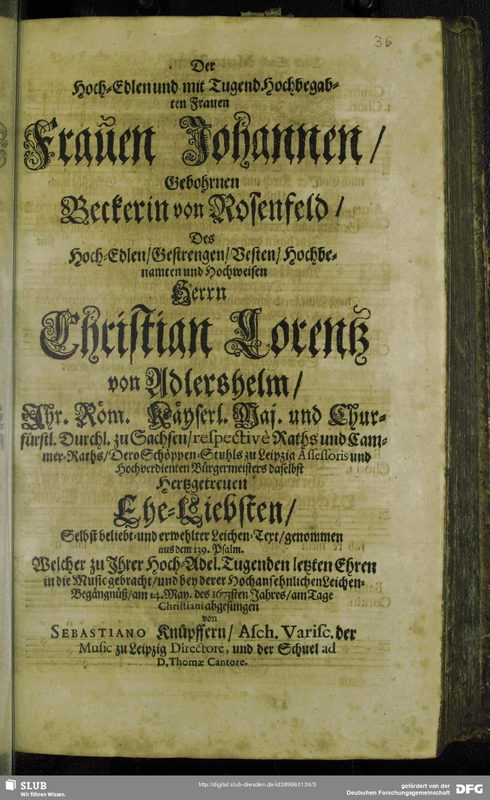 36
Der
Hoch-Edlen und mit Tugend Hochbegab-
ten Frauen
Frauen Johannen/
Gebohrnen
Beckerin von Rosenfeld/
Des
Hoch-Edlen/Gestrengen/Vesten/Hochbe-
namten und Hochweisen
Herrn
Christian Lorentz
von Adlershelm/
Ihr. Röm. Käyserl. Maj. und Chur-
fürstl. Durchl. zu Sachsen/respectivè Raths und Cam-
mer-Raths/Dero Schöppen-Stuhls zu Leipzig Assessoris und
Hochverdienten Bürgermeisters daselbst
Hertzgetreuen
Ehe-Liebsten/
Selbst beliebt-und erwehlter Leichen-Text/genommen
aus dem 139. Psalm.
Welcher zu Ihrer Hoch-Adel. Tugenden letzten Ehren
in die Music gebracht/und bey derer Hochansehnlichen Leichen-
Begängnüß/am 14. May. des 1673sten Jahres/am Tage
Christiani abgesungen
von
SEBASTIANO Knüpffern/ Asch. Varisc. der
Music zu Leipzig Directore, und der Schuel ad
D. Thomæ Cantore.
SLUB
Wir führen Wissen.
http://digital.slub-dresden.de/id389960136/3
gefördert von der
Deutschen Forschungsgemeinschaft
DFG